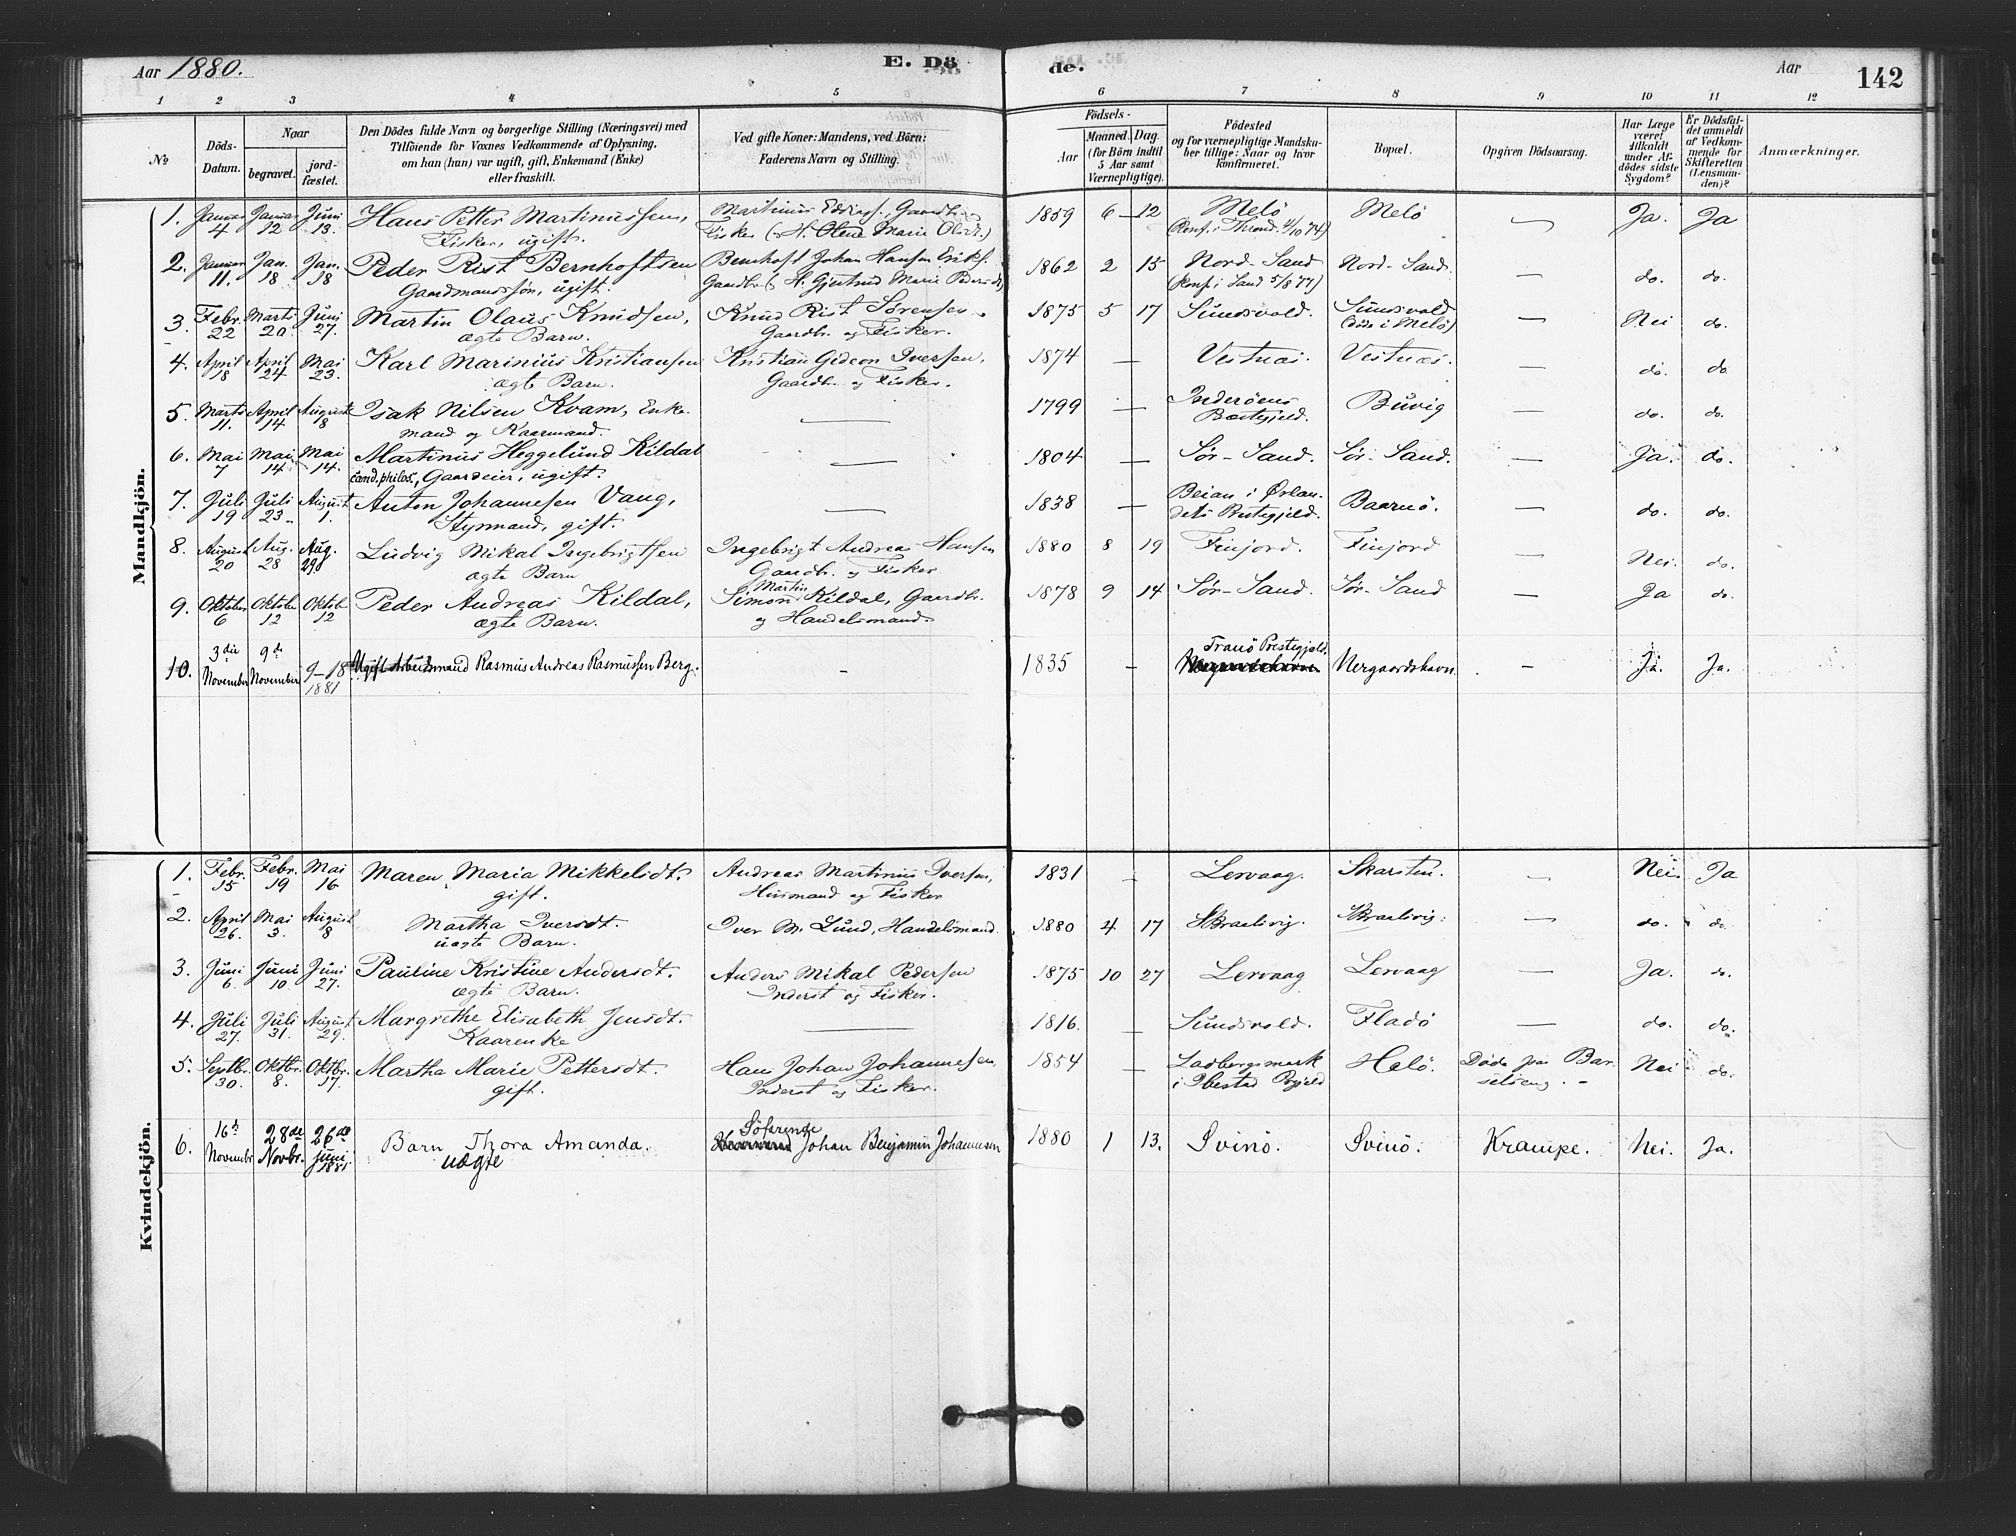 Aar 1880.
E. Dö
de.
Aar
142
1 2 3 4 5 6 7 8 9 10 11 12
№
Döds-
Datum.
Naar
begravet.
jord-
fæstet.
Den Dödes fulde Navn og borgerlige Stilling (Næringsvei) med
Tilföiende for Voxnes Vedkommende af Oplysning,
om han (hun) var ugift, gift, Enkemand (Enke)
eller fraskilt.
Ved gifte Koner: Mandens, ved Börn:
Faderens Navn og Stilling.
Födsels-
Aar
Maaned. Dag.
(for Börn indtil
5 Aar samt
Værnepligtige).
Födested
og for værnepligtige Mandska-
ber tillige: Naar og hvor
konfirmeret.
Bopæl.
Opgiven Dödsaarsag.
Har Læge
været
tilkaldt
under Af-
dödes sidste
Sygdom?
Er Dödsfal-
det anmeldt
af Vedkom-
mende for
Skifteretten
(Lensman-
den)?
Anmærkninger.
Mandkjön.
1. Januar Januar Juni Hans Petter Martinussen, Martinus Gaardbr. 1859 6 – 12 Melö Melö — Ja. Ja
4 12 13. Fisker, ugift. Fisker (& H. Olene Marie Olsd.) (Konf. i Thrond. 4/10 74)
2. Januar Jan. Jan. Peder Rist Bernhoftsen Bernhoft Johan Hansen Eriks. 1862 2 15 Nord-Sand Nord-Sand. — do. do.
11. 18 18 Gaardmandssön, ugift. Gaardbr. (& H. Gjertrud Marie Pedersd.) (Konf. i Sand 5/8 77)
3. Febr. Marts Juni Martin Olaus Knudsen, Knud Rist Sörensen 1875 5 17 Sundsvold. Sundsvold — Nei do.
22 20 27. ægte Barn. Gaardbr. og Fisker. (döde i Melö)
4. April April Mai Karl Marinius Kristiansen Kristian Gideon Iversen, 1874 — Vestnæs. Vestnæs. — do. do
18 24 23. ægte Barn. Gaardbr. og Fisker.
5. Marts April August Isak Nilsen Kvam, Enke- — 1799 — Inderöens Buvig — do. do.
11. 14 8 mand og Kaarmand. Præstegjeld.
6. Mai Mai Mai Martinus Heggelund Kildal — 1804 — Sör-Sand. Sör-Sand. — Ja. do.
7 14 14. cand. philos., Gaardeier, ugift.
7. Juli Juli August Anton Johannesen Vang, — 1838 — Beian i Ørlan- Baarnö. — do. do.
19 23 1. Styrmand, gift. dets Prestegjeld.
8. August Aug. Aug. Ludvig Mikal Ingebrigtsen Ingebrigt Andreas Hansen 1880 8 19 Finjord. Finjord — Nei. do.
20 28 29. ægte Barn Gaardbr. og Fisker
9. Oktober Oktober Oktob. Peder Andreas Kildal, Simon Martin Kildal, Gaardbr. 1878 9 14 Sör-Sand. Sör-Sand — Ja do.
6 12 12 ægte Barn. og Handelsmand.
10. 3die November 9de November 9-18 1881 Ugift Arbeidsmand Rasmus Andreas Rasmussen Berg. – 1835 – Tranö Prestegjeld. Nergaardshavn Nergaardshavn. – Ja. Ja.
Kvindekjön.
1. Febr. Febr. Mai Maren Maria Mikkelsdt. Andreas Martinus Iversen, 1831 – Lervaag. Skarsten. — Nei. Ja
15 19 16 gift. Husmand og Fisker
2. April Mai August Martha Iversdt. Iver M. Lund, Handelsmand. 1880 4 17 — do. do.
26. 3. 8 uægte Barn.
3. Juni Juni Juni Pauline Kristine Andersdt. Anders Mikal Pedersen 1875 10 27 Lervaag Lervaag — Ja. do.
6. 10 27. ægte Barn. Inderst og Fisker.
4. Juli Juli August Margrethe Elisabeth Jensdt. — 1816. — Sundsvold. Fladö — do. do.
27. 31. 29. Kaarenke
5. Septbr. Oktbr. Oktbr. Martha Marie Pettersdt. Hans Johan Johannesen, 1854 — Ladbergsmark Helö. Döde paa Bar- Nei do.
30. 8. 17. gift. Inderst og Fisker. i Ibestad Prgjeld selseng.
6. 16de Novembr. 28de Novbr. 26de Juni 1881. Barn Thora Amanda. Söfarende Johan Benjamin Johannesen 1880 1 13. Svinö. Svinö. Krampe. Nei. Ja.
uægte